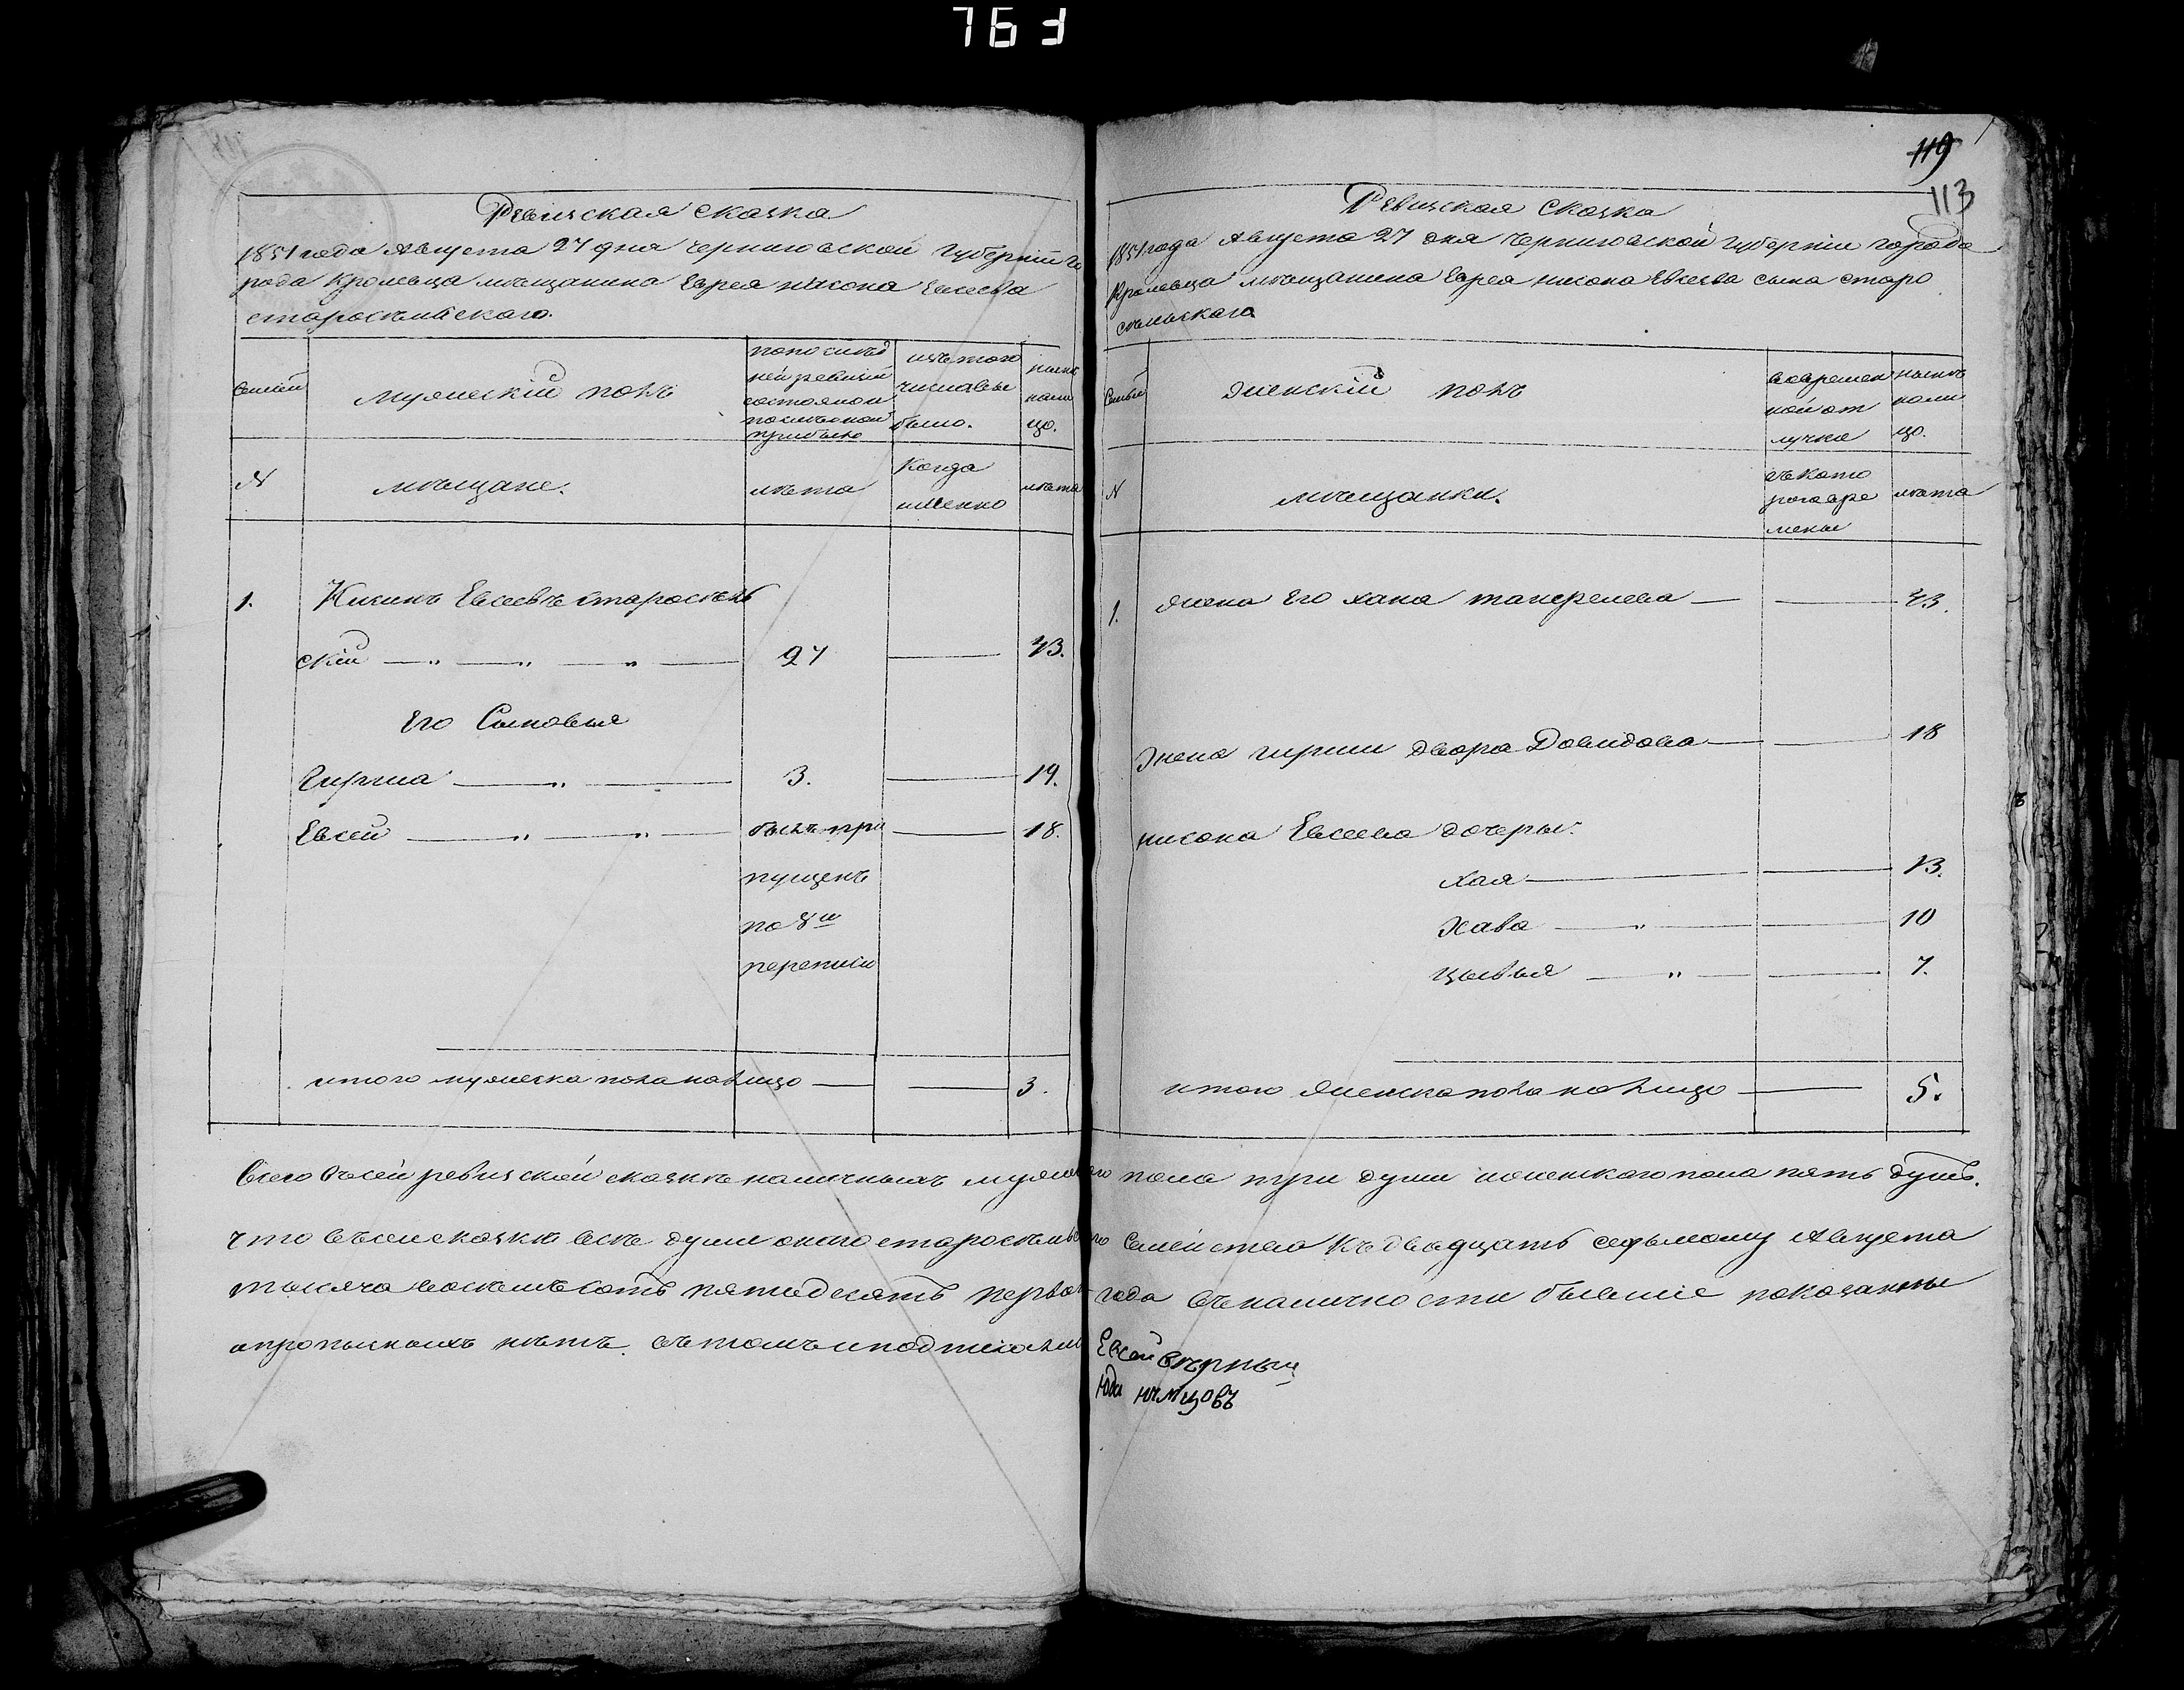 763
119
113
Ревизская сказка
1851 года Августа 27 дня черниговской Губернии го
рода Кролевца мѣщанина Еврея нисона Евсеева
старосѣльского.
Семьи
мужескій полъ
по послѣд
ней ревизіи
состояло и
после оной
прибыло
изъ того
числа вы
было.
нынѣ
нали
цо.
N
мѣщане.
лѣта
Когда
именно
лѣта
1.
Нисинъ Евсеевъ старосѣль
скій — „ — „ — „ —
27
43.
Его Сыновья
Гирша — „ —
3.
19.
Евсей — „ — „ —
былъ про
18.
пущенъ
по 8й
переписи
итого мужеска пола на лицо —
3.
Ревизская Сказка
1851 года Августа 27 дня Черниговской губерніи города
Кролевца мѣщанина Еврея нисона Евсеева сына старо
сѣльскаго
Семьи
женскій полъ
во времен
ной от
лучке
нынѣ
нали
цо.
N
мѣщанки.
съ кото
рого вре
мены
лѣта
1.
жена Его хана —
43.
Жена гирши двора Довидова —
18
нисона Евсеева дочеры:
хая —
13.
Хава — „ —
10
цывья — „ —
7.
итого женска пола на лицо —
5.
Всего въ сей ревизской сказкѣ наличныхъ мужескаго пола три души и женского пола пять душъ.
что въ сей сказкѣ всѣ души оного старосѣльского Семейства Къ двадцать седьмому Августа
тысяча восемьсотъ пятидесятъ первого года въ наличности бывшіе показанны
а прописныхъ нѣтъ. въ томъ и подписались Евсей
Юда нѣмцовъ